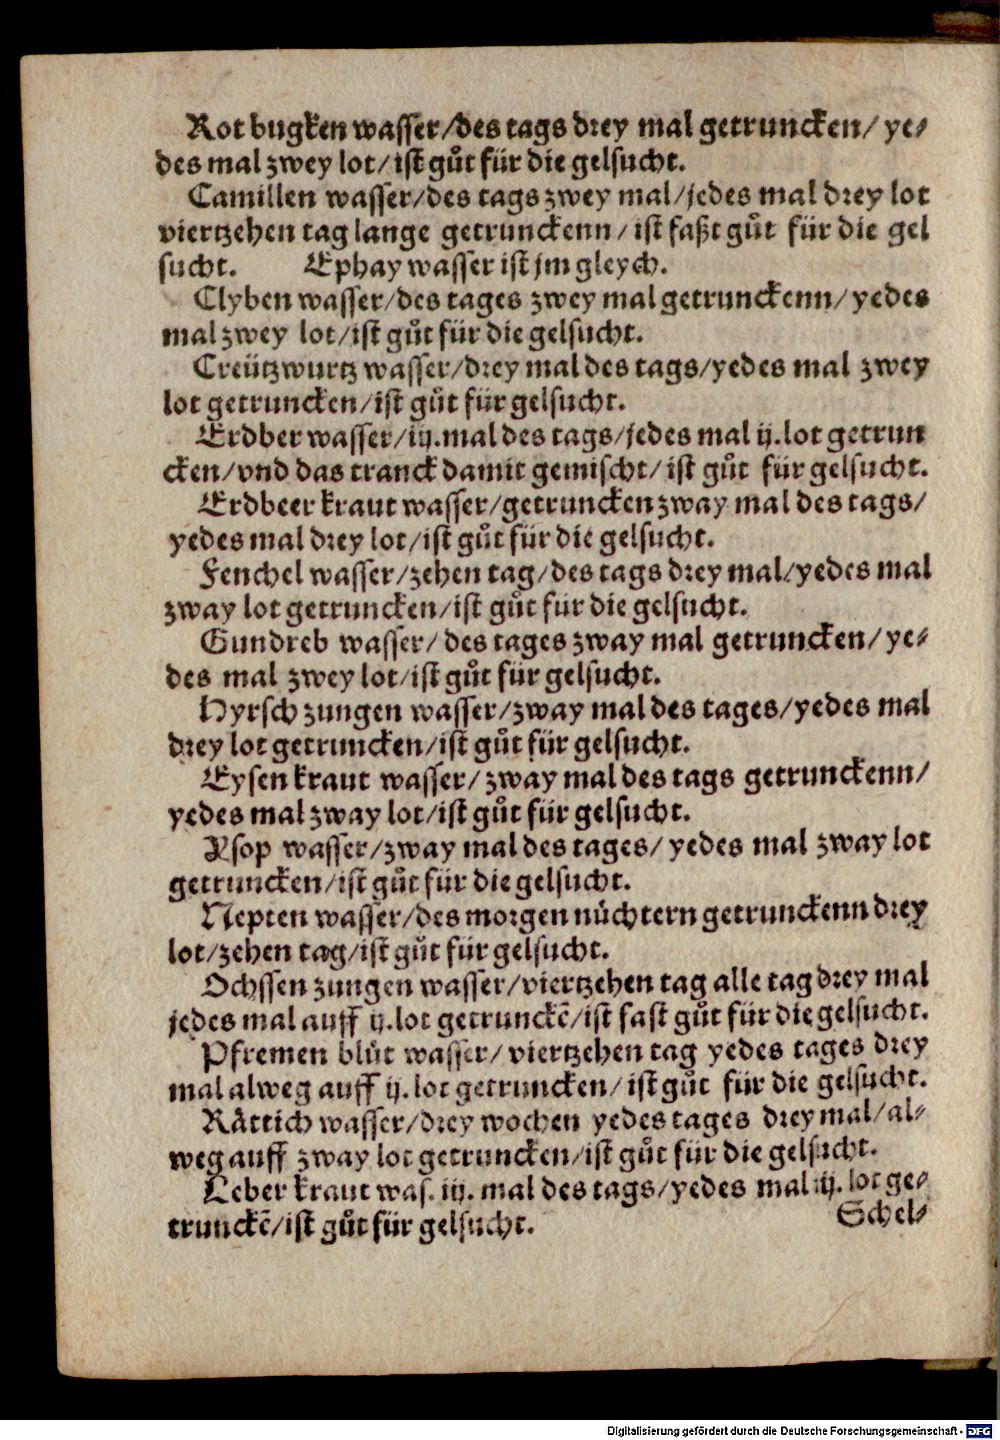 Rot bugken wasser/des tags drey mal getruncken/ ye⸗
des mal zwey lot/ist gůt für die gelsucht.
Camillen wasser/des tags zwey mal/jedes mal drey lot
viertzehen tag lange getrunckenn/ist faßt gůt für die gel
sucht. Ephay wasser ist jm gleych.
Clyben wasser/des tages zwey mal getrunckenn/ yedes
mal zwey lot/ist gůt für die gelsucht.
Creützwurtz wasser/drey mal des tags/yedes mal zwey
lot getruncken/ist gůt für gelsucht.
Erdber wasser/iij.mal des tags/jedes mal ij.lot getrun
cken/vnd das tranck damit gemischt/ist gůt für gelsucht.
Erdbeer kraut wasser/getruncken zway mal des tags/
yedes mal drey lot/ist gůt für die gelsucht.
Fenchel wasser/zehen tag/des tags drey mal/yedes mal
zway lot getruncken/ist gůt für die gelsucht.
Gundreb wasser/ des tages zway mal getruncken/ ye⸗
des mal zwey lot/ist gůt für gelsucht.
Hyrsch zungen wasser/zway mal des tages/yedes mal
drey lot getruncken/ist gůt für gelsucht.
Eysen kraut wasser/ zway mal des tags getrunckenn/
yedes mal zway lot/ist gůt für gelsucht.
Ysop wasser/zway mal des tages/ yedes mal zway lot
getruncken/ist gůt für die gelsucht.
Nepten wasser/des morgen nüchtern getrunckenn drey
lot/zehen tag/ist gůt für gelsucht.
Ochssen zungen wasser/viertzehen tag alle tag drey mal
jedes mal auff ij.lot getrunckē/ist fast gůt für die gelsucht.
Pfremen blůt wasser/ viertzehen tag yedes tages drey
mal alweg auff ij. lot getruncken/ ist gůt für die gelsucht.
Råttich wasser/drey wochen yedes tages drey mal/al⸗
weg auff zway lot getruncken/ist gůt für die gelsucht.
Leber kraut was. iij. mal des tags/yedes mal ij. lot ge⸗
trunckē/ist gůt für gelsucht.
Schel⸗
Digitalisierung gefördert durch die Deutsche Forschungsgemeinschaft - DFG